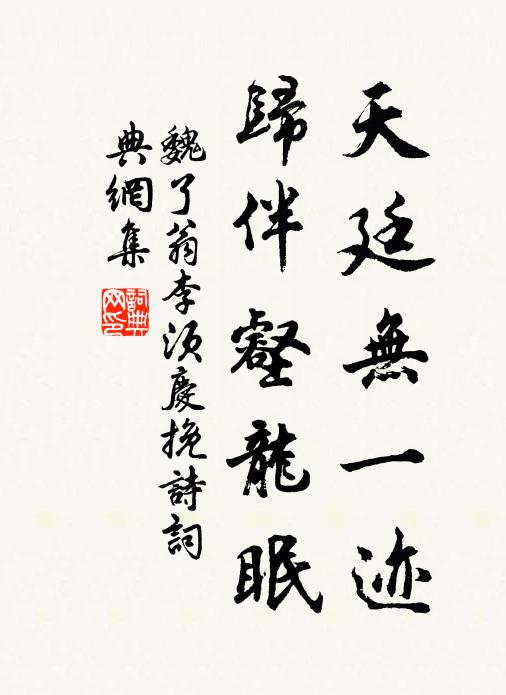 天廷無一迹
歸伴壑龍眠
魏了翁李須慶挽詩詞
典網集
詞典網印